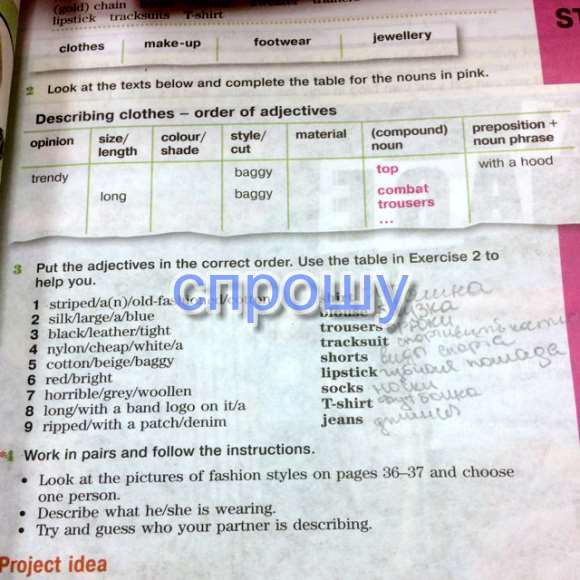 (gold) chain
lipstick tracksuits T-shirt
clothes make-up footwear jewellery
2 Look at the texts below and complete the table for the nouns in pink.
Describing clothes – order of adjectives
opinion size/ length colour/ shade style/ cut material (compound) noun preposition + noun phrase
trendy baggy top with a hood
long baggy combat trousers
...
3 Put the adjectives in the correct order. Use the table in Exercise 2 to
help you.
спрошу
1 striped/a(n)/old-fashioned/cotton shirt
2 silk/large/a/blue blouse
3 black/leather/tight trousers
4 nylon/cheap/white/a tracksuit
5 cotton/beige/baggy shorts
6 red/bright lipstick губная помада
7 horrible/grey/woollen socks носки
8 long/with a band logo on it/a T-shirt футболка
9 ripped/with a patch/denim jeans джинсы
*4 Work in pairs and follow the instructions.
• Look at the pictures of fashion styles on pages 36–37 and choose
one person.
• Describe what he/she is wearing.
• Try and guess who your partner is describing.
Project idea
ST